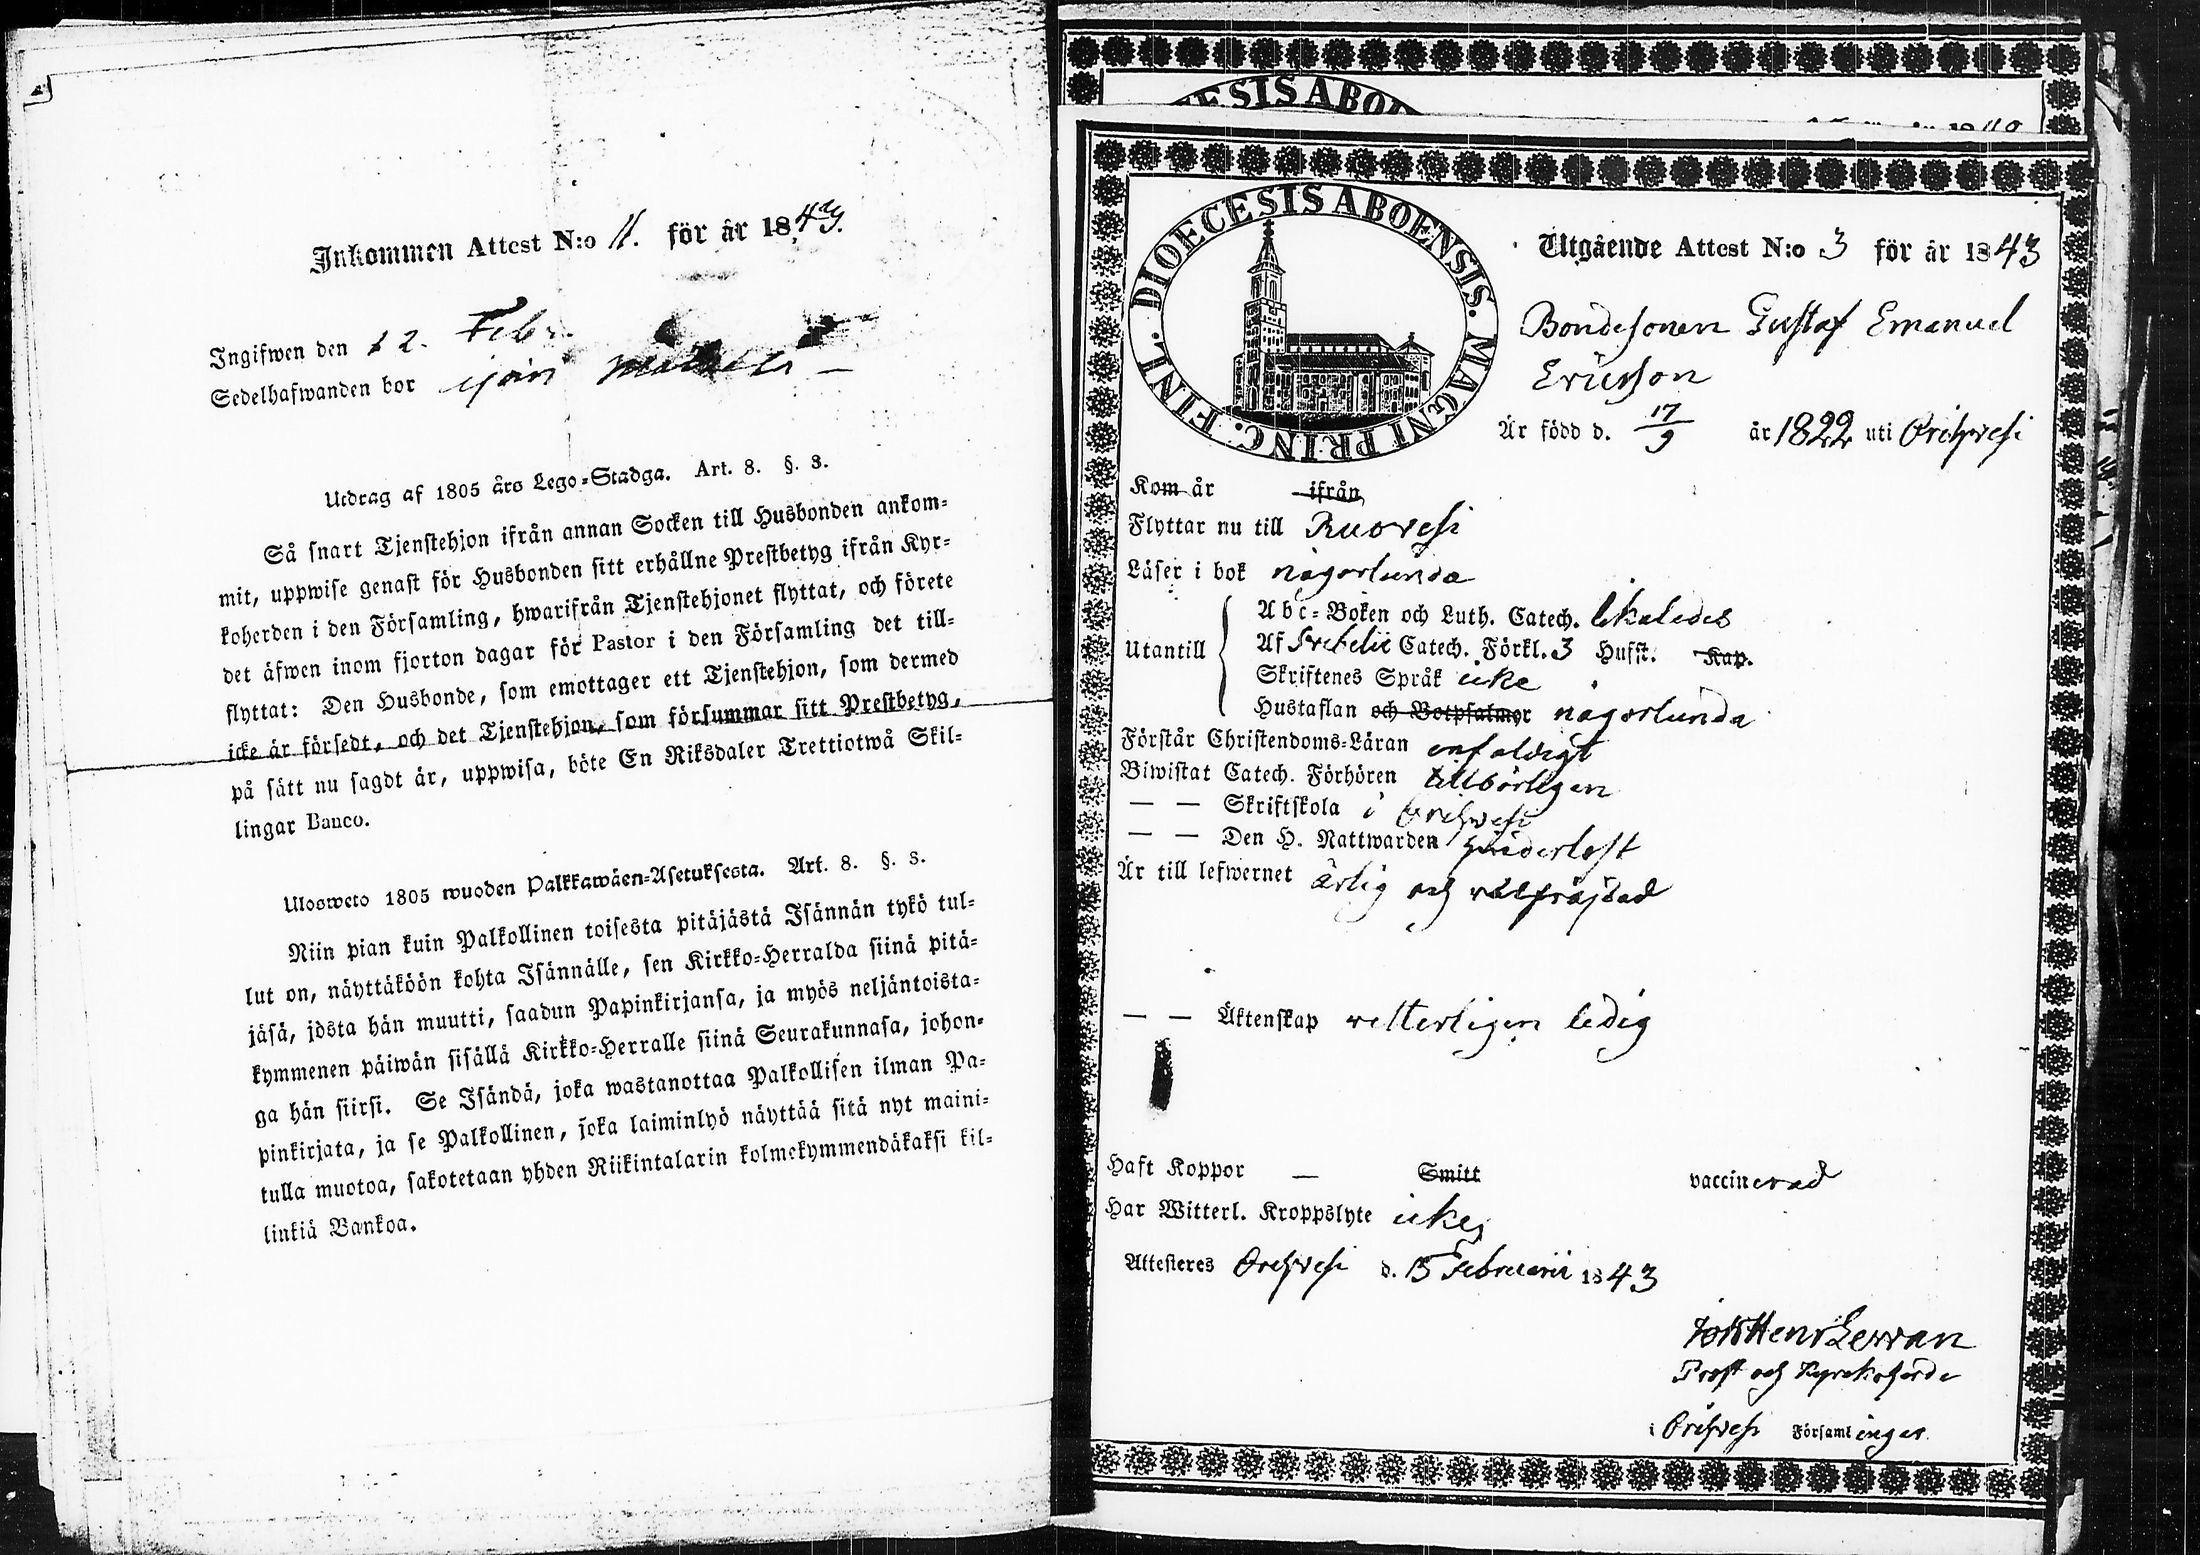 Inkommen Attest N:o 11. för år 1843.
Ingifwen den 12. Febr.
Sedelhafwanden bor
Utdrag af 1805 års Lego-Stadga. Art. 8. §. 3.
Så snart Tjenstehjon ifrån annan Socken till Husbonden ankom-
mit, uppwise genast för Husbonden sitt erhållne Prestbetyg ifrån Kyr-
koherden i den Församling, hwarifrån Tjenstehjonet flyttat, och förete
det äfwen inom fjorton dagar för Pastor i den Församling det till-
flyttat: Den Husbonde, som emottager ett Tjenstehjon, som dermed
icke är försedt, och det Tjenstehjon, som försummar sitt Prestbetyg,
på sätt nu sagdt är, uppwisa, böte En Riksdaler Trettiotwå Skil-
lingar Banco.
Ulosweto 1805 wuoden Palkkawäen-Asetuksesta. Art. 8. §. 3.
Niin pian kuin Palkollinen toisesta pitäjästä Isännän tykö tul-
lut on, näyttäköön kohta Isännälle, sen Kirkko-Herralda siinä pitä-
jäsä, josta hän muutti, saadun Papinkirjansa, ja myös neljäntoista-
kymmenen päiwän sisällä Kirkko-Herralle siinä Seurakunnasa, johon-
ga hän siirsi. Se Isändä, joka wastanottaa Palkollisen ilman Pa-
pinkirjata, ja se Palkollinen, joka laiminlyö näyttää sitä nyt maini-
tulla muotoa, sakotetaan yhden Riikintalarin kolmekymmendäkaksi kil-
linkiä Bankoa.
DIOECESIS ABOENSIS. MAGNI PRINC. FINL.
Utgående Attest N:o 3 för år 1843
Bondesonen Gustaf Emanuel
Ericsson
Är född d. 17/9 år 1822 uti Orihvesi
Kom år ifrån
Flyttar nu till Ruovesi
Läser i bok någorlunda
Abc-Boken och Luth. Catech. likaledes
Utantill
Af Svebelii Catech. Förkl. 3 Hufst. Kap.
Skriftenes Språk icke
Hustaflan och Botpsalmer någorlunda
Förstår Christendoms-Läran enfaldigt
Biwistat Catech. Förhören tillbörligen
— — Skriftskola i Orihvesi
— — Den H. Nattwarden hinderlöst
Är till lefwernet ärlig och välfräjdad
— — Äktenskap vetterligen ledig
Haft Koppor — Smitt vaccinerad
Har Witterl. Kroppslyte icke
Attesteres Orihvesi d. 15 Februarii 1843
Prost och Kyrckoherde
i Orihvesi Församlingar